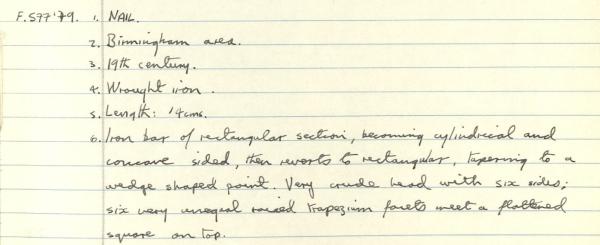 F.S77'79. 1. NAIL.
2. Birmingham area.
3. 19th century.
4. Wrought iron.
5. Length: 14cms.
6. Iron bar of rectangular section, becoming cylindrical and
concave sided, then reverts to rectangular, tapering to a
wedge shaped point. Very crude head with six sides;
six very unequal raised trapezium facets meet a flattened
square on top.